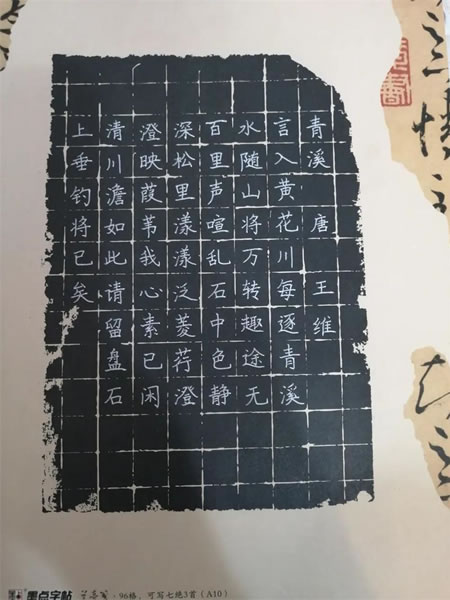 青溪 唐 王维
言入黄花川每逐青溪
水随山将万转趣途无
百里声喧乱石中色静
深松里漾漾泛菱荇澄
澄映葭苇我心素已闲
清川澹如此请留盘石
上垂钓将已矣
墨点字帖 · 96格，可写七绝3首（A10）